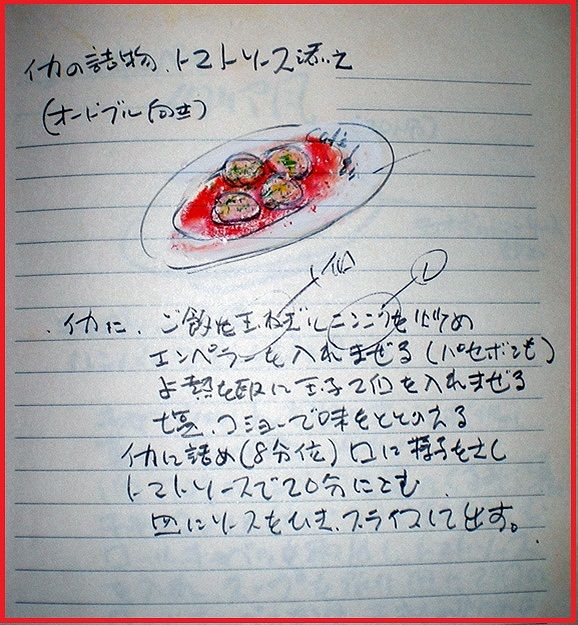 イカの詰物、トマトソース添え
(オードブル向き)
Café
1個
1
・イカに、ご飯を玉ネギ ニンニクを炒め
エンペラーを入れまぜる(パセリ も)
を取に玉子2個を入れまぜる
塩、コショーで味をととのえる
イカに詰め(8分位)口に楊子をさし
トマトソースで20分にこむ
皿にソースをひき、スライスして出す。